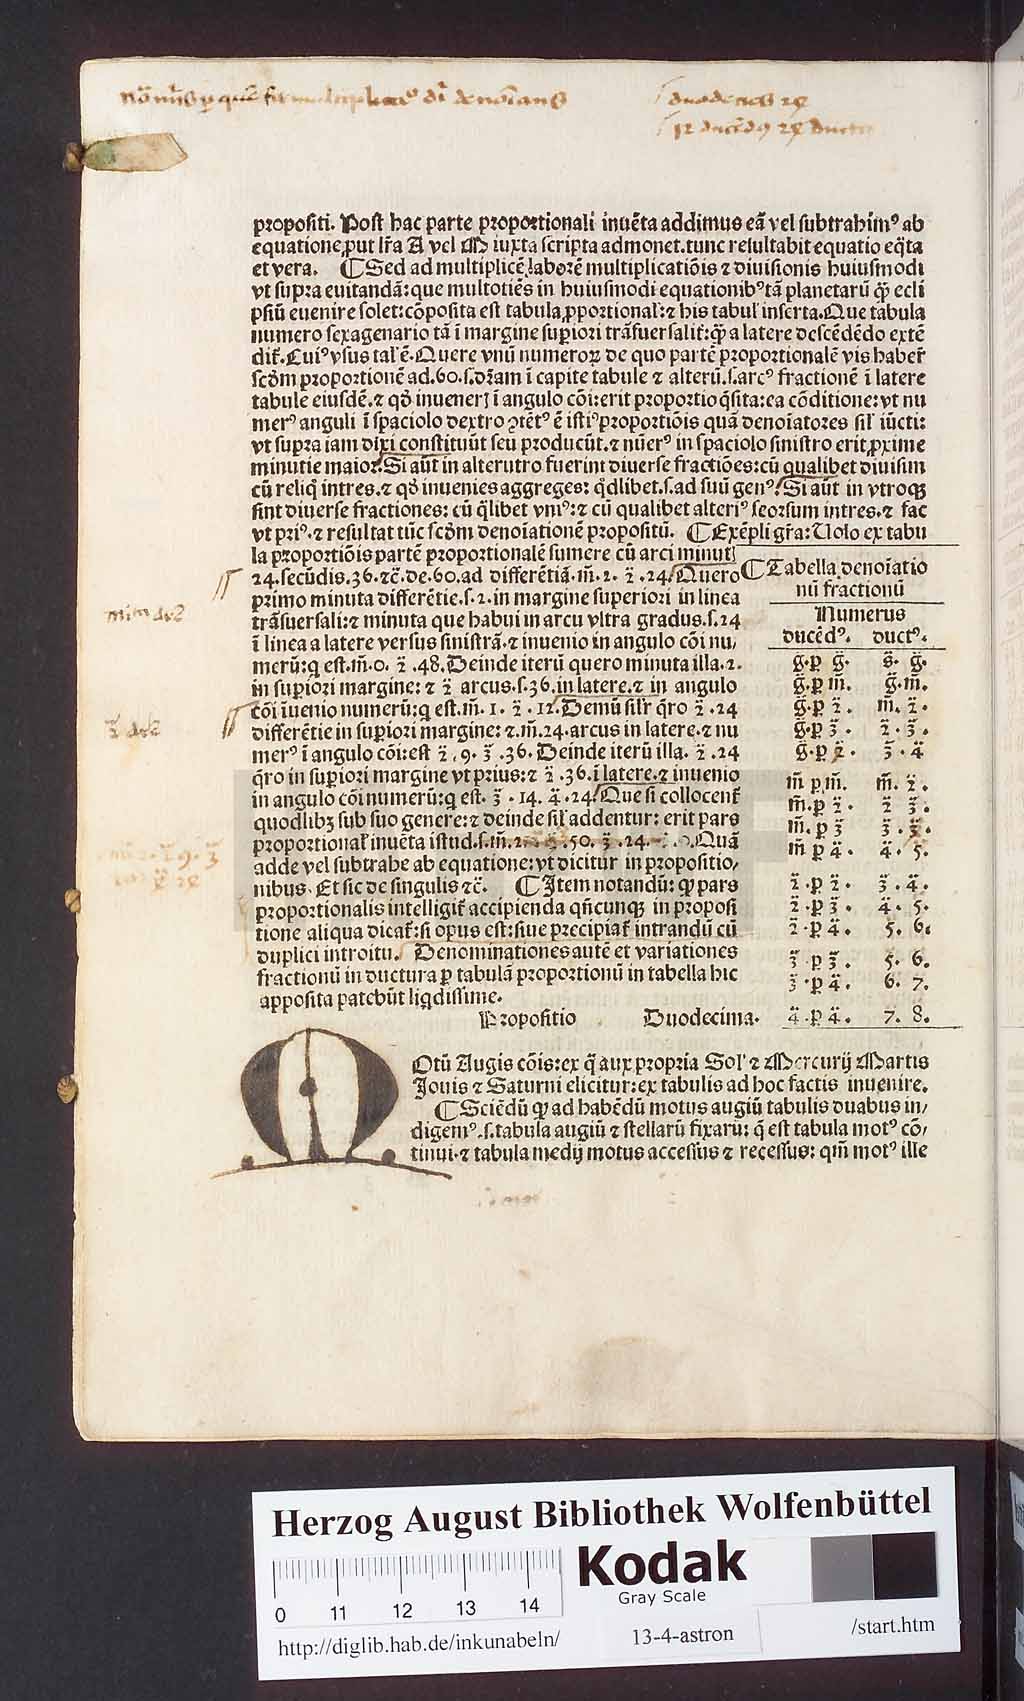 propositi. Post hac parte proportionali inuẽta addimus eã vel subtrahimꝰ ab
equatione, ꝓut lr̃a A vel M iuxta scripta admonet. tunc resultabit equatio eq̃ta
et vera. ¶ Sed ad multiplicẽ laborẽ multiplicatiõis ⁊ diuisionis huiusmodi
vt supra euitandã: que multotiẽs in huiusmodi equationibꝰ tã planetarũ qꝫ̃ ecli
psiũ euenire solet: cõposita est tabula ꝓportional': ⁊ his tabul' inserta. Que tabula
numero sexagenario tã ĩ margine supiori trãsuersalit̃: qꝫ̃ a latere descẽdẽdo extẽ
dit̃. Cuiꝰ vsus tal' ẽ. Quere vnũ numeroꝝ de quo partẽ proportionalẽ vis haber̃
scd̃m proportionẽ ad .60. s. dr̃am ĩ capite tabule ⁊ alterũ .s. arcꝰ fractionẽ ĩ latere
tabule eiusdẽ. ⁊ qd̃ inueneris ĩ angulo cõi: erit proportio q̃sita: ea cõditione: vt nu
merꝰ anguli ĩ spaciolo dextro ꝯtẽtꝰ ẽ istiꝰ proportiõis quã denoĩatores sil' iũcti:
vt supra iam dixi constituũt seu producũt. ⁊ nũerꝰ in spaciolo sinistro erit ꝓxime
minutie maior. Si aũt in alterutro fuerint diuerse fractiões: cũ qualibet diuisim
cũ reliq̃ intres. ⁊ qd̃ inuenies aggreges: q̃dlibet .s. ad suũ genꝰ. Si aũt in vtroqꝫ
sint diuerse fractiones: cũ q̃libet vniꝰ: ⁊ cũ qualibet alteriꝰ seorsum intres. ⁊ fac
vt priꝰ. ⁊ resultat tũc scd̃m denoĩationẽ propositũ. ¶ Exẽpli gr̃a: Uolo ex tabu
la proportiõis partẽ proportionalẽ sumere cũ arci minut'
24. secũdis .36. ⁊c̃. de .60. ad differẽtiã .m̃. 2. 2̃ .24. Quero
primo minuta differẽtie .s. 2. in margine superiori in linea
trãsuersali: ⁊ minuta que habui in arcu vltra gradus .s. 24
ĩ linea a latere versus sinistrã. ⁊ inuenio in angulo cõi nu,
merũ: q̃ est .m̃. 0. 2̃ .48. Deinde iterũ quero minuta illa .2.
in supiori margine: ⁊ 2̃ arcus .s. 36. in latere. ⁊ in angulo
cõi ĩuenio numerũ: q̃ est .m̃. 1. 2̃ . 12. Demũ sil'r q̃ro 2̃ .24
differẽtie in supiori margine: ⁊ .m̃. 24. arcus in latere. ⁊ nu
merꝰ ĩ angulo cõi: est 2̃ . 9. 3̃ .36. Deinde iterũ illa. 2̃ .24
q̃ro in supiori margine vt prius: ⁊ 2̃ .36. ĩ latere. ⁊ inuenio
in angulo cõi numerũ: q̃ est. 3̃ . 14. 4̃ . 24. Que si collocent̃
quodlibꝫ sub suo genere: ⁊ deinde sil' addentur: erit pars
proportional' inuẽta istud .s. m̃. 50. 3̃ .24. Quã
adde vel subtrahe ab equatione: vt dicitur in propositio,
nibus. Et sic de singulis ⁊c̃. ¶ Item notandũ: qꝫ̃ pars
proportionalis intelligit̃ accipienda qñcunqꝫ in proposi
tione aliqua dicat̃: si opus est: siue precipiat̃ intrandũ cũ
duplici introitu. Denominationes autẽ et variationes
fractionũ in ductura p tabulã proportionũ in tabella hic
apposita patebũt liq̃dissime.
¶ Tabella denoĩatio
nũ fractionũ
Numerus
ducẽdꝰ. ductꝰ.
g̃. p g̃. s̃. g̃.
g̃. p m̃. g̃. m̃.
g̃. p 2̃. m̃. 2̃.
g̃. p 3̃. 2̃. 3̃.
g̃. p 4̃. 3̃. 4̃
m̃ p m̃. m̃. 2̃.
m̃. p 2̃. 2̃ 3̃.
m̃. p 3̃ 3̃. 4̃.
m̃ p 4̃. 4̃. 5.
2̃. p 2̃. 3̃. 4̃.
2̃. p 3̃. 4̃. 5.
2̃. p 4̃. 5. 6.
3̃. p 3̃. 5. 6.
3̃. p 4̃. 6. 7.
4̃. p 4̃. 7. 8.
Propositio Duodecima.
MOtũ Augis cõis: ex q̃ aux propria Sol' ⁊ Mercurij Martis
Jouis ⁊ Saturni elicitur: ex tabulis ad hoc factis inuenire.
¶ Sciẽdũ qꝫ̃ ad habẽdũ motus augiũ tabulis duabus in,
digemꝰ .s. tabula augiũ ⁊ stellarũ fixarũ: q̃ est tabula motꝰ cõ,
tinui. ⁊ tabula medij motus accessus ⁊ recessus: qm̃ motꝰ ille
Herzog August Bibliothek Wolfenbüttel
Kodak
Gray Scale
0 11 12 13 14
http://diglib.hab.de/inkunabeln/
13-4-astron
/start.htm